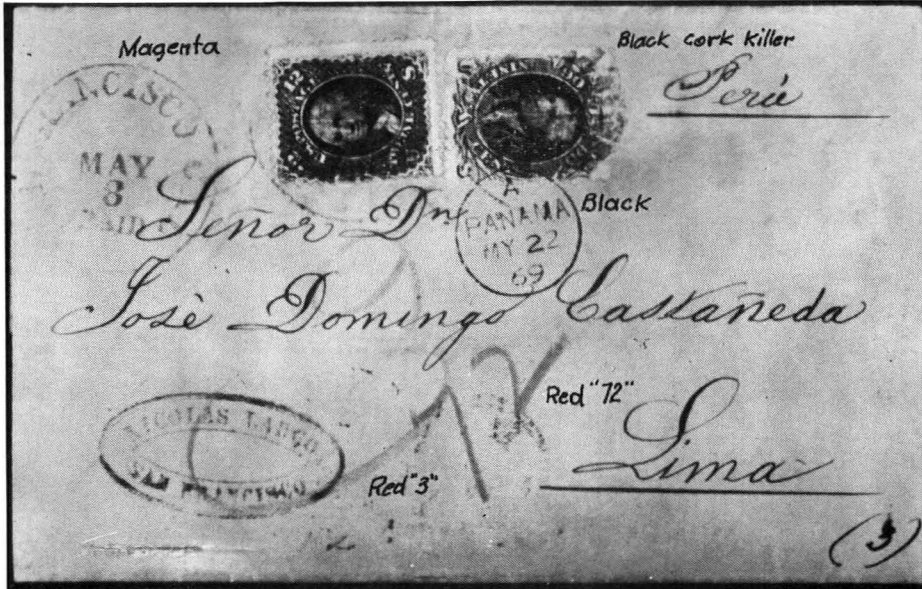 Magenta
Black cork killer
Perú
MAY
8
PAID
12
PANAMA
MY 22
69
Black
Señor Dn
José Domingo Castañeda
Red "72"
NICOLAS LARCO
SAN FRANCISCO
Red "3"
Lima
(3)